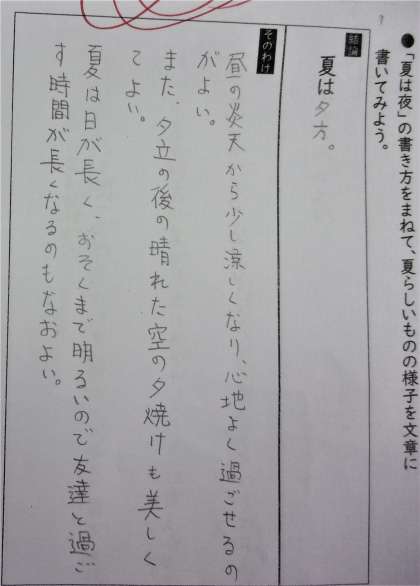 ●「夏は夜」の書き方をまねて、夏らしいものの様子を文章に
書いてみよう。
結論
夏は夕方。
そのわけ
昼の炎天から少し涼しくなり、心地よく過ごせるの
がよい。
また、夕立の後の晴れた空の夕焼けも美しく
てよい。
夏は日が長く、おそくまで明るいので友達と過ご
す時間が長くなるのもなおよい。